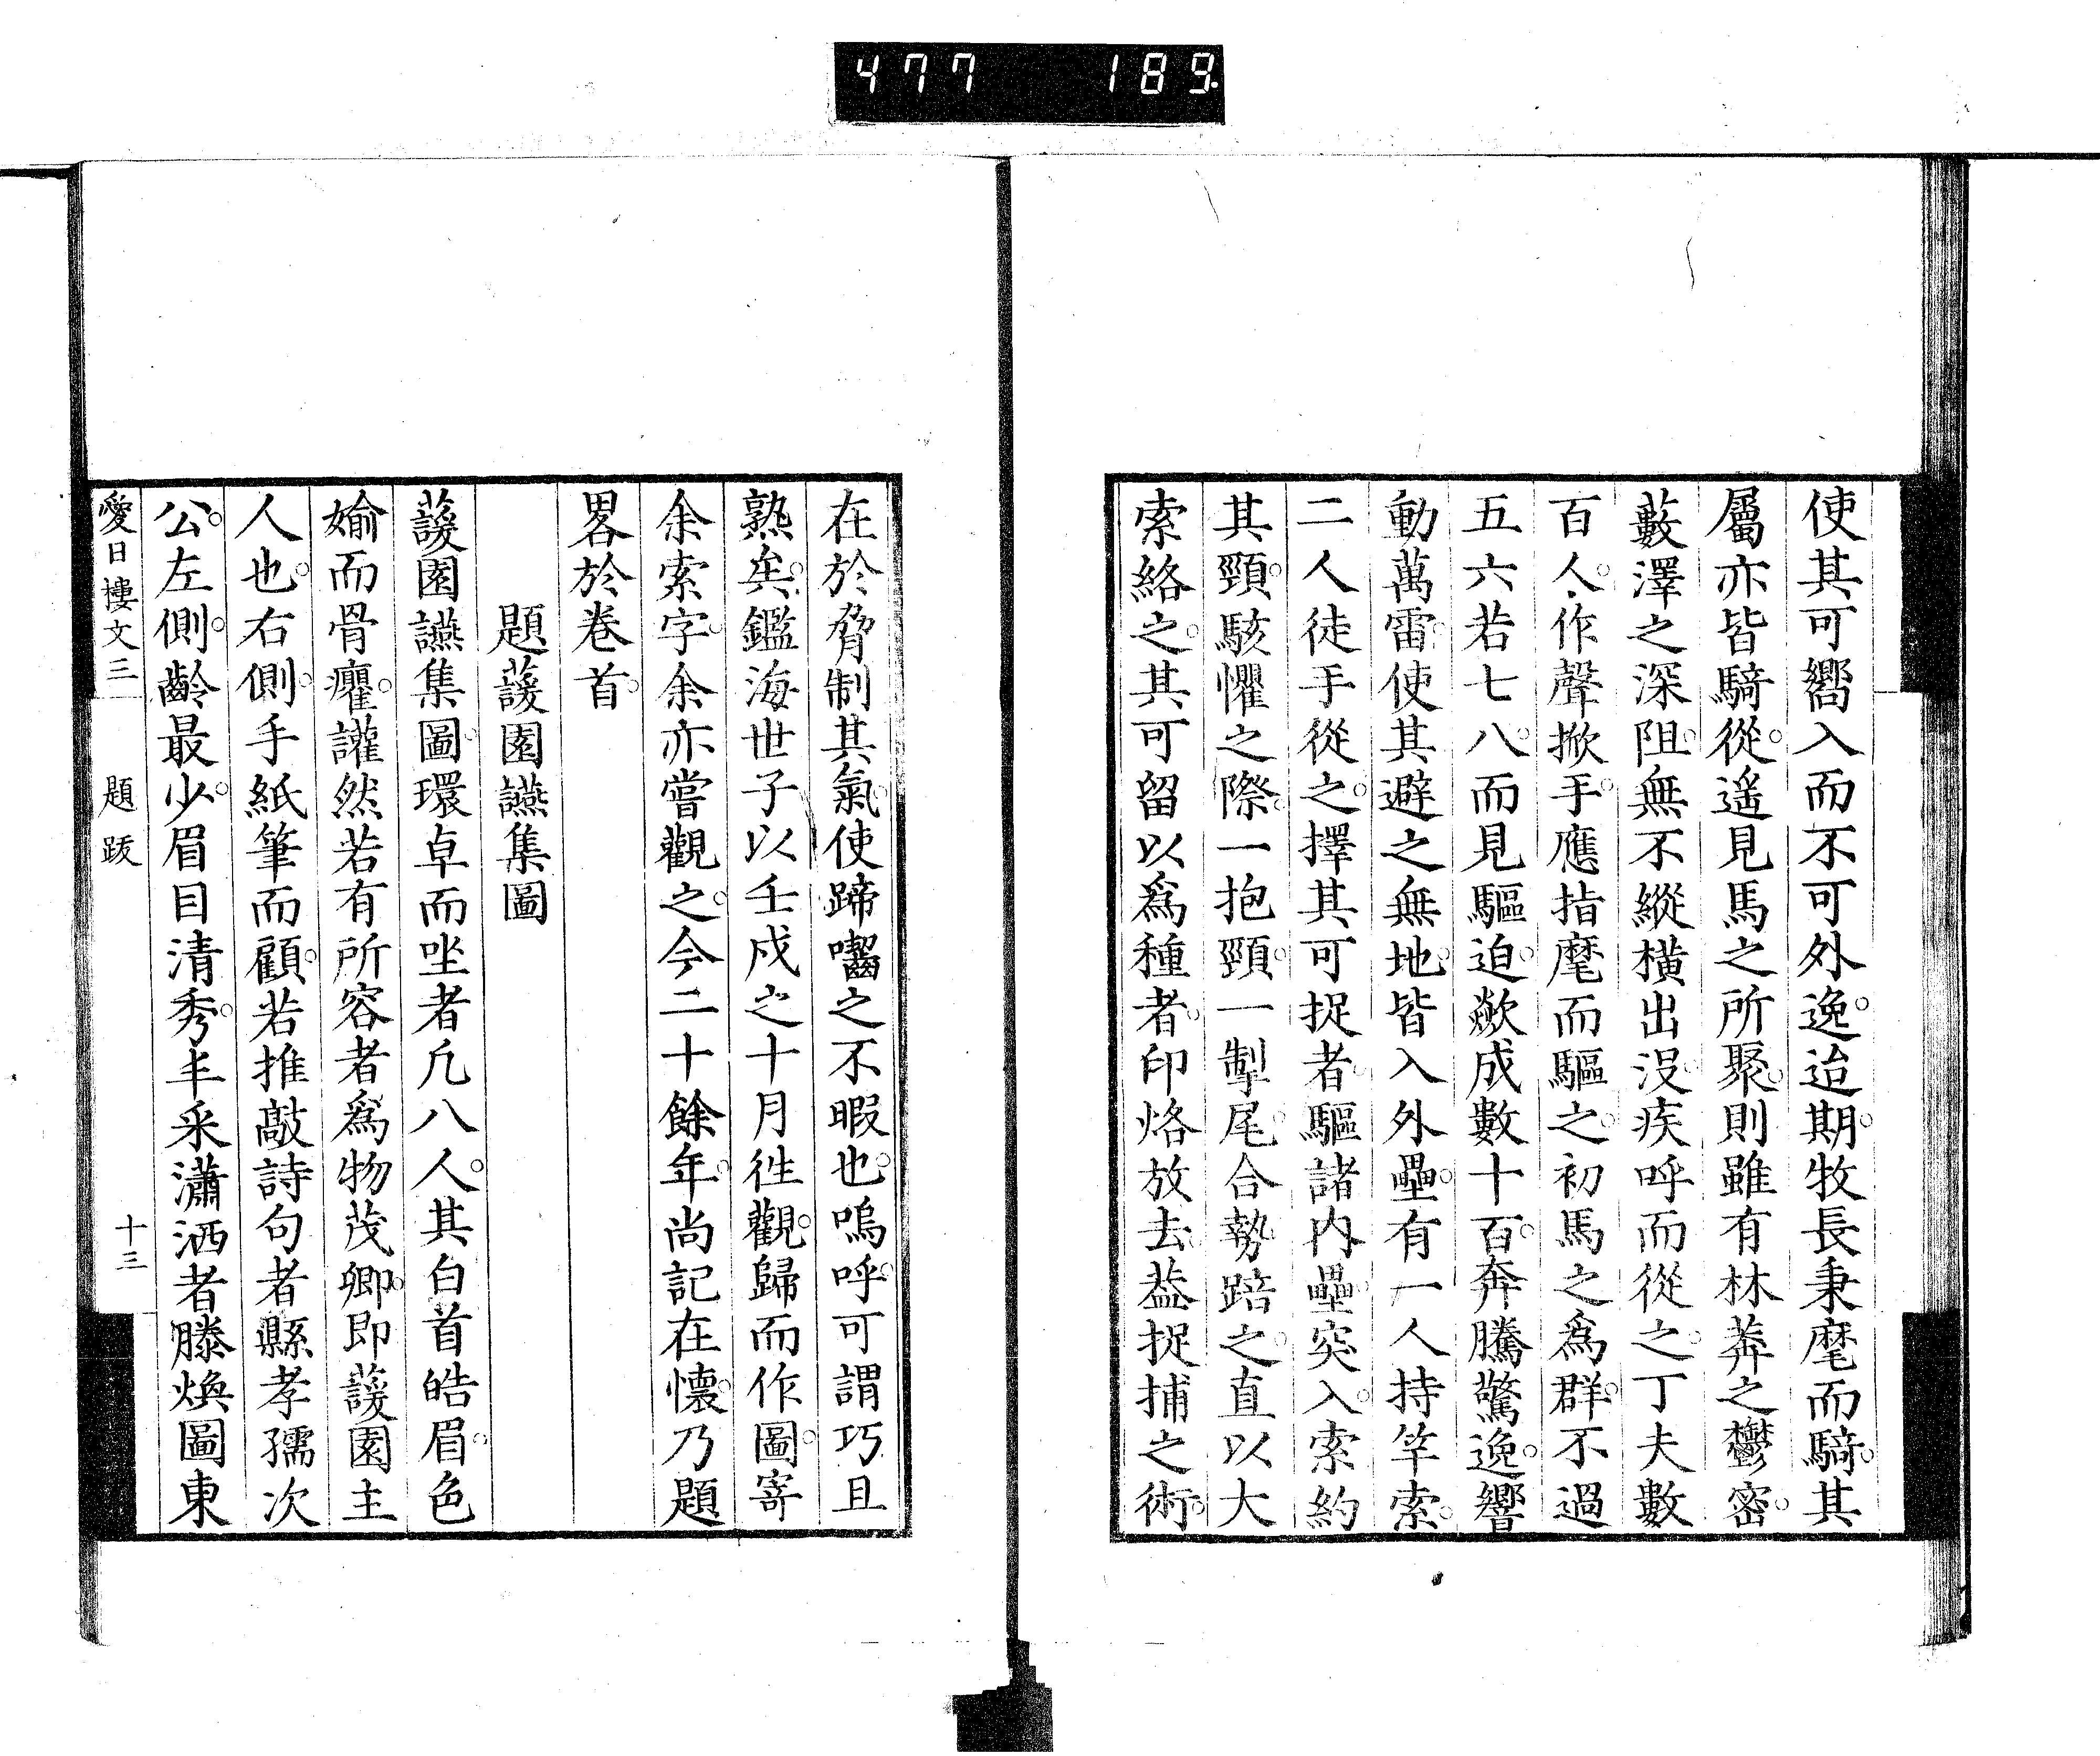 477 189
使其可嚮入而不可外逸迨期牧長秉麾而騎其
屬亦皆騎從遥見馬之所聚則雖有林莽之鬱密
藪澤之深阻無不縱橫出没疾呼而從之丁夫數
百人作聲掀手應指麾而驅之初馬之爲群不過
五六若七八而見驅迫歘成數十百奔騰驚逸響
動萬雷使其避之無地皆入外壘有一人持竿索
二人徒手從之擇其可捉者驅諸内壘突入索約
其頸駭懼之際一抱頸一掣尾合勢踣之直以大
索絡之其可留以爲種者印烙放去葢捉捕之術
在於脅制其氣使蹄嚙之不暇也嗚呼可謂巧且
熟矣鑑海世子以壬戍之十月徃觀歸而作圖寄
余索字余亦嘗觀之今二十餘年尚記在懷乃題
畧於卷首
題蘐園讌集圖
蘐園讌集圖環卓而坐者凡八人其白首皓眉色
媮而骨癯讙然若有所容者爲物茂卿即蘐園主
人也右側手紙筆而顧若推敲詩句者縣孝孺次
公左側齡最少眉目清秀丰采瀟洒者滕煥圖東
愛日樓文三 題跋 十三